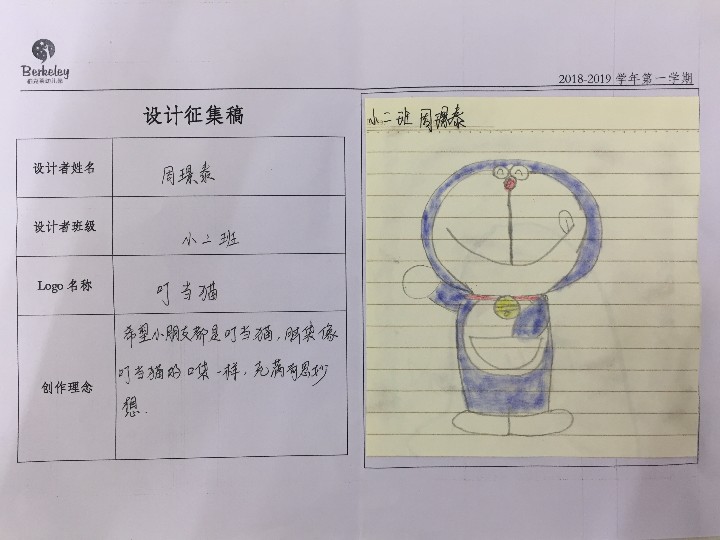 Berkeley
2018-2019 学年第一学期
设计征集稿
设计者姓名
周璟泰
设计者班级
小二班
Logo 名称
叮当猫
创作理念
希望小朋友都是叮当猫,脑袋像
叮当猫的口袋一样,充满奇思妙
想.
小二班 周璟泰